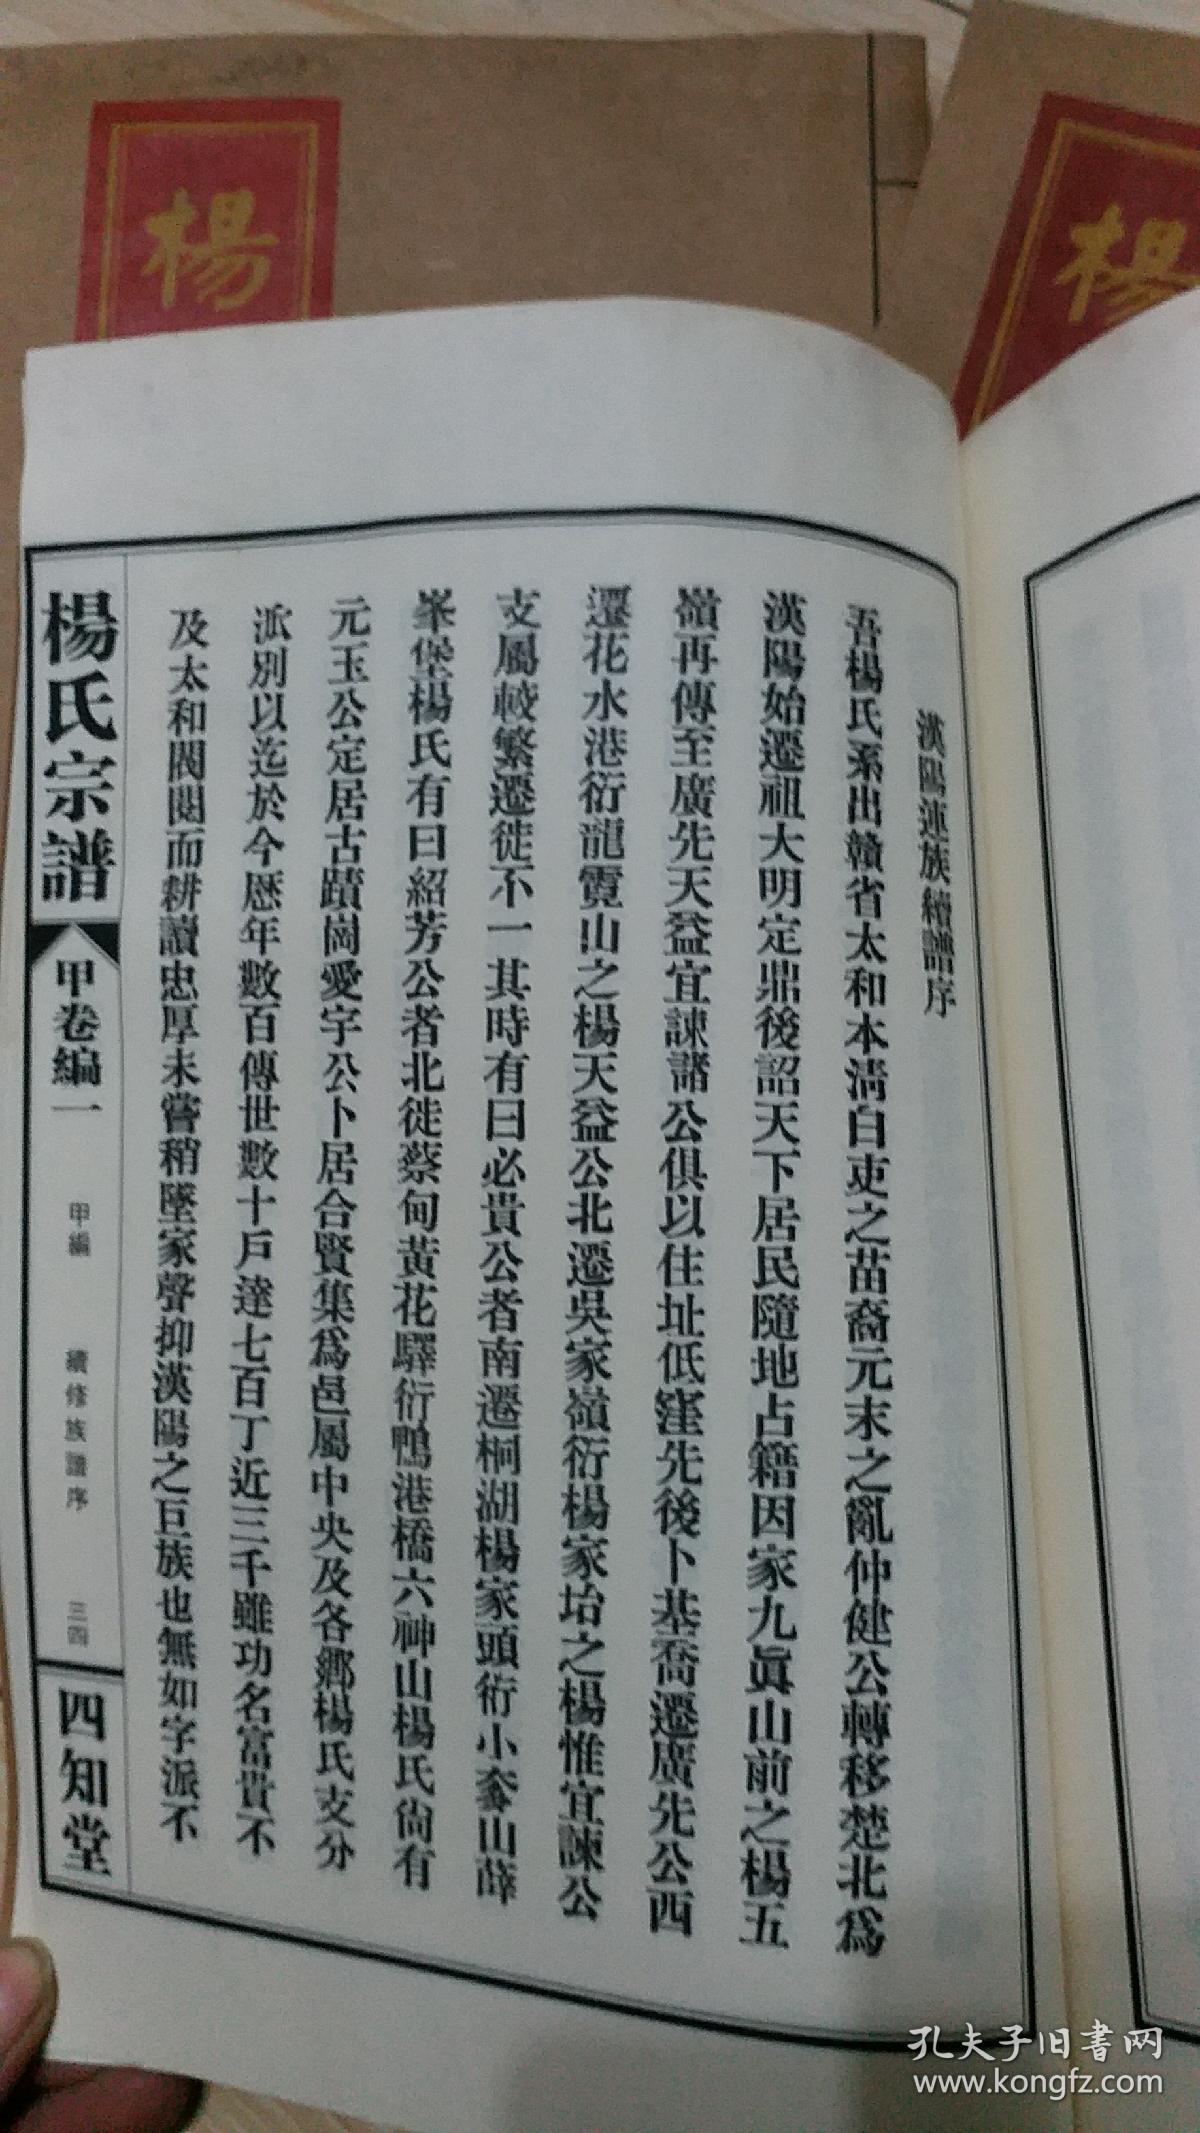 楊
楊
漢陽連族續譜序
吾楊氏系出贛省太和本清白吏之苗裔元末之亂仲健公轉移楚北爲
漢陽始遷祖大明定鼎後詔天下居民隨地占籍因家九眞山前之楊五
嶺再傳至廣先天益宜諫諸公俱以住址低窪先後卜基喬遷廣先公西
遷花水港衍龍霓山之楊天益公北遷吳家嶺衍楊家坮之楊惟宜諫公
支屬較繁遷徙不一其時有曰必貴公者南遷桐湖楊家頭衍小奓山薛
峯堡楊氏有曰紹芳公者北徙蔡甸黃花驛衍鴨港橋六神山楊氏尙有
元玉公定居古蹟崗愛宇公卜居合賢集爲邑屬中央及各鄉楊氏支分
派別以迄於今歷年數百傳世數十戶達七百丁近三千雖功名富貴不
及太和閥閱而耕讀忠厚未嘗稍墜家聲抑漢陽之巨族也無如字派不
楊氏宗譜
甲卷編一
甲編 續修族譜序 三四
四知堂
孔夫子旧書网
www.kongfz.com